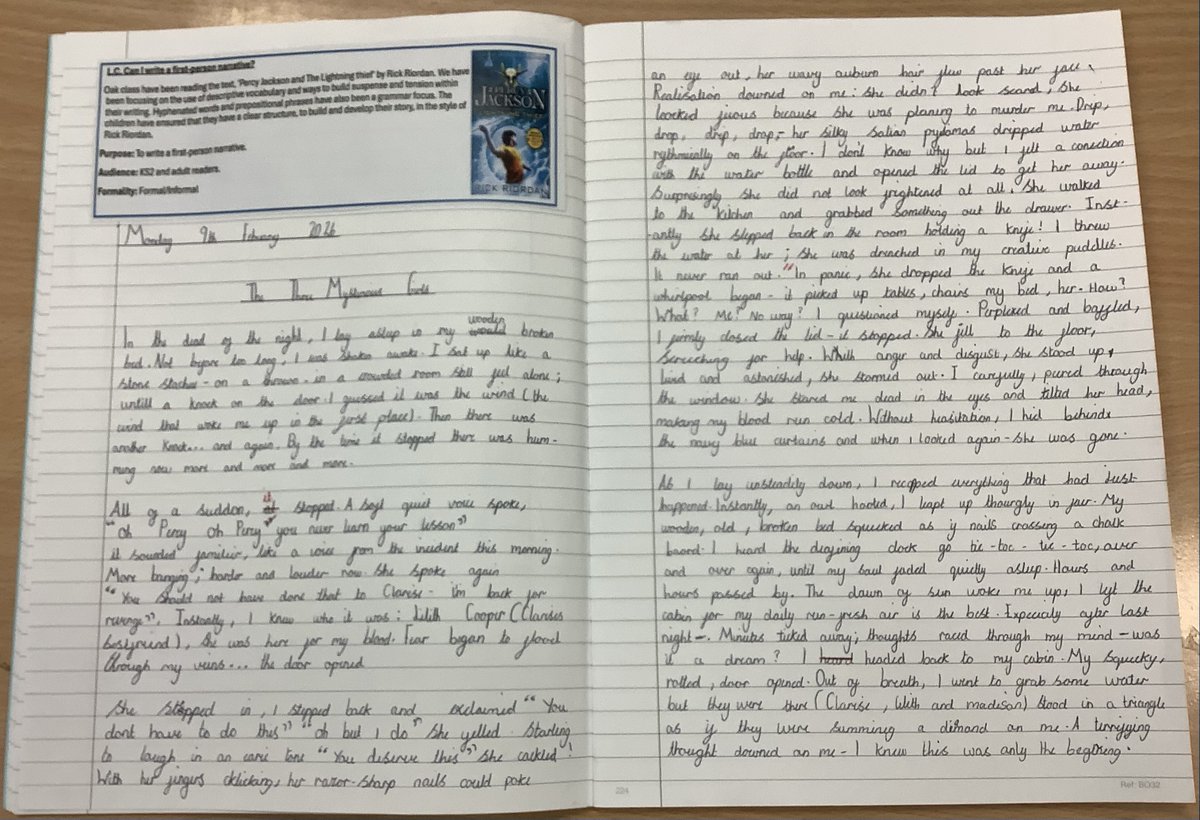 L.C. Can I write a first-person narrative?
Oak class have been reading the text, 'Percy Jackson and The Lightning thief' by Rick Riordan. We have
been focusing on the use of descriptive vocabulary and ways to build suspense and tension within
their writing. Hyphenated words and prepositional phrases have also been a grammar focus. The
children have ensured that they have a clear structure, to build and develop their story, in the style of
Rick Riordan.
Purpose: To write a first-person narrative.
Audience: KS2 and adult readers.
Formality: Formal/Informal
PERCY
JACKSON
RICK RIORDAN
Monday 9th February 2026
The Three Mysterious Girls
wooden
In the dead of the night, I lay asleep in my would broken
bed. Not before too long, I was shaken awake. I sat up like a
stone - on a thrown - in a crowded room still feel alone;
untill a knock on the door. I guessed it was the wind (the
wind that woke me up in the first place). Then there was
another knock... and again. By the time it stopped there was hum-
ming now more and more and more.
All of a sudden, it stopped. A soft quiet voice spoke,
"oh Percy oh Percy you never learn your lesson"
it sounded familier, like a voice from the incident this morning.
More banging; harder and louder now. She spoke again
"You should not have done that to Clarese - I'm back for
revenge". Instantly, I knew who it was: Lilith Cooper (Clarises
bestfriend), She was here for my blood. Fear began to flood
through my veins... the door opened
She stepped in, I stepped back and exclaimed "You
dont have to do this" "oh but I do" she yelled. Starting
to laugh in an earie tone "You deserve this" she cackled!
With her fingers clicking, her razor-sharp nails could poke
an eye out, her wavy auburn hair flew past her face.
Realisation downed on me: she didn't look scared, she
loocked furous because she was planing to murder me. Drip,
drop, drip, drop,- her silky satian pyjamas dripped water
rythmically on the floor. I don't know why but I felt a conection
with the water bottle and opened the lid to get her away.
Surprisingly she did not look frightened at all. She walked
to the kitchen and grabbed something out the drawer. Inst-
antly she stepped back in the room holding a knife! I threw
the water at her; she was drenched in my creative puddles.
It never ran out. "In panic, she dropped the knife and a
whirlpool began - it picked up tables, chairs my bed, her. How?
What? Me? No way? I questioned myself. Perplexed and baffled,
I firmly closed the lid - it stopped. She fill to the floor,
screeching for help. Whith anger and disgust, she stood up,
and astonished, she stormed out. I carefully, peered through
the window. She stared me dead in the eyes and tilted her head,
making my blood run cold. Without heasitation, I hid behinde
the navy blue curtains and when I looked again - she was gone.
As I lay unsteadily down, I recapped everything that had Just
happened. Instantly, an owl hooted, I leapt up in fear. My
wooden, old, broken bed squecked as if nails crossing a chalk
baord. I heard the clock go tic-toc - tic-toc, over
and over again, until my soul faded quietly asleep. Hours and
hours passed by. The dawn of sun woke me up, I left the
cabin for my daily run - fresh air is the best. Especialy after last
night -. Minutes ticked away; thoughts raced through my mind - was
it a dream? I heard headed back to my cabin. My squecky,
rolled, door opened. Out of breath, I went to grab some water
but they were there (Clarise, lilith and madison) stood in a triangle
as if they were summing a dimand on me. A terrifying
thought downed on me - I knew this was only the begining.
224
Ref: BO32